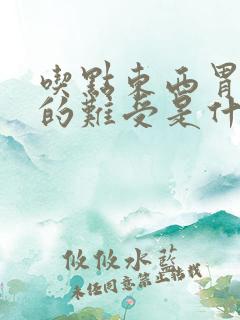 喫點東西胃
的難受是什
攸攸水藍
未经同意禁止转载